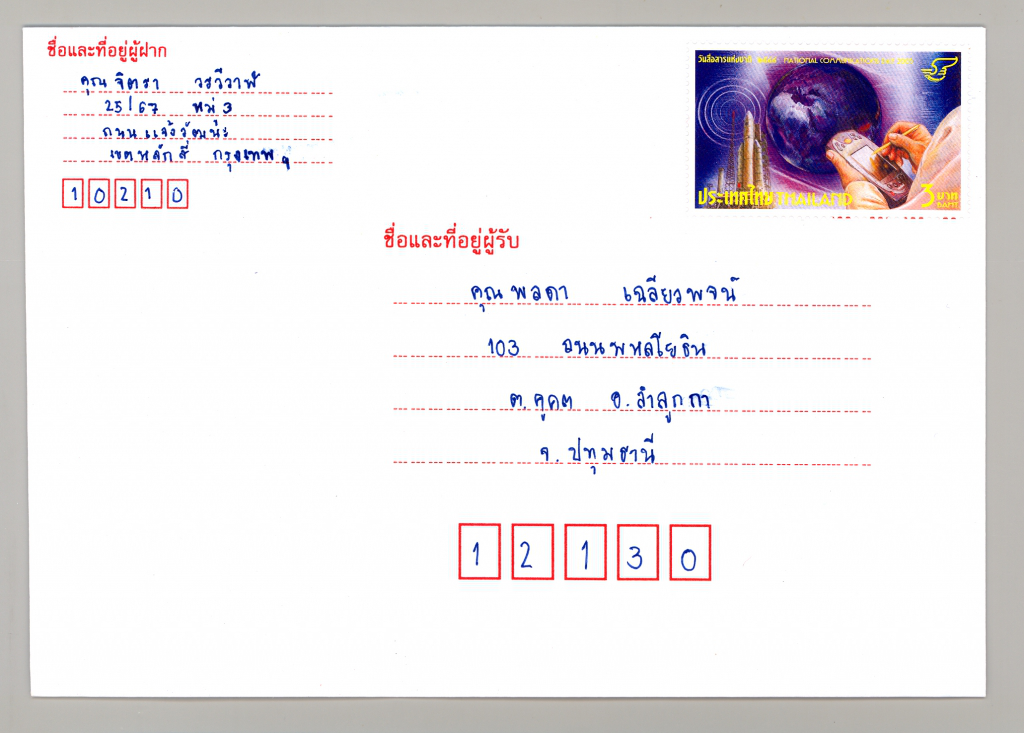 ชื่อและที่อยู่ผู้ฝาก
คุณ จิตรา วรวีวาฬ
25/67 หมู่ 3
ถนนแจ้งวัฒนะ
เขตหลักสี่ กรุงเทพฯ
10210
วันสื่อสารแห่งชาติ NATIONAL COMMUNICATIONS DAY
ประเทศไทย THAILAND
3 บาท
BAHT
ชื่อและที่อยู่ผู้รับ
คุณ พลดา เฉลียวพจน์
103 ถนนพหลโยธิน
ต.คูคต อ.ลำลูกกา
จ.ปทุมธานี
12130